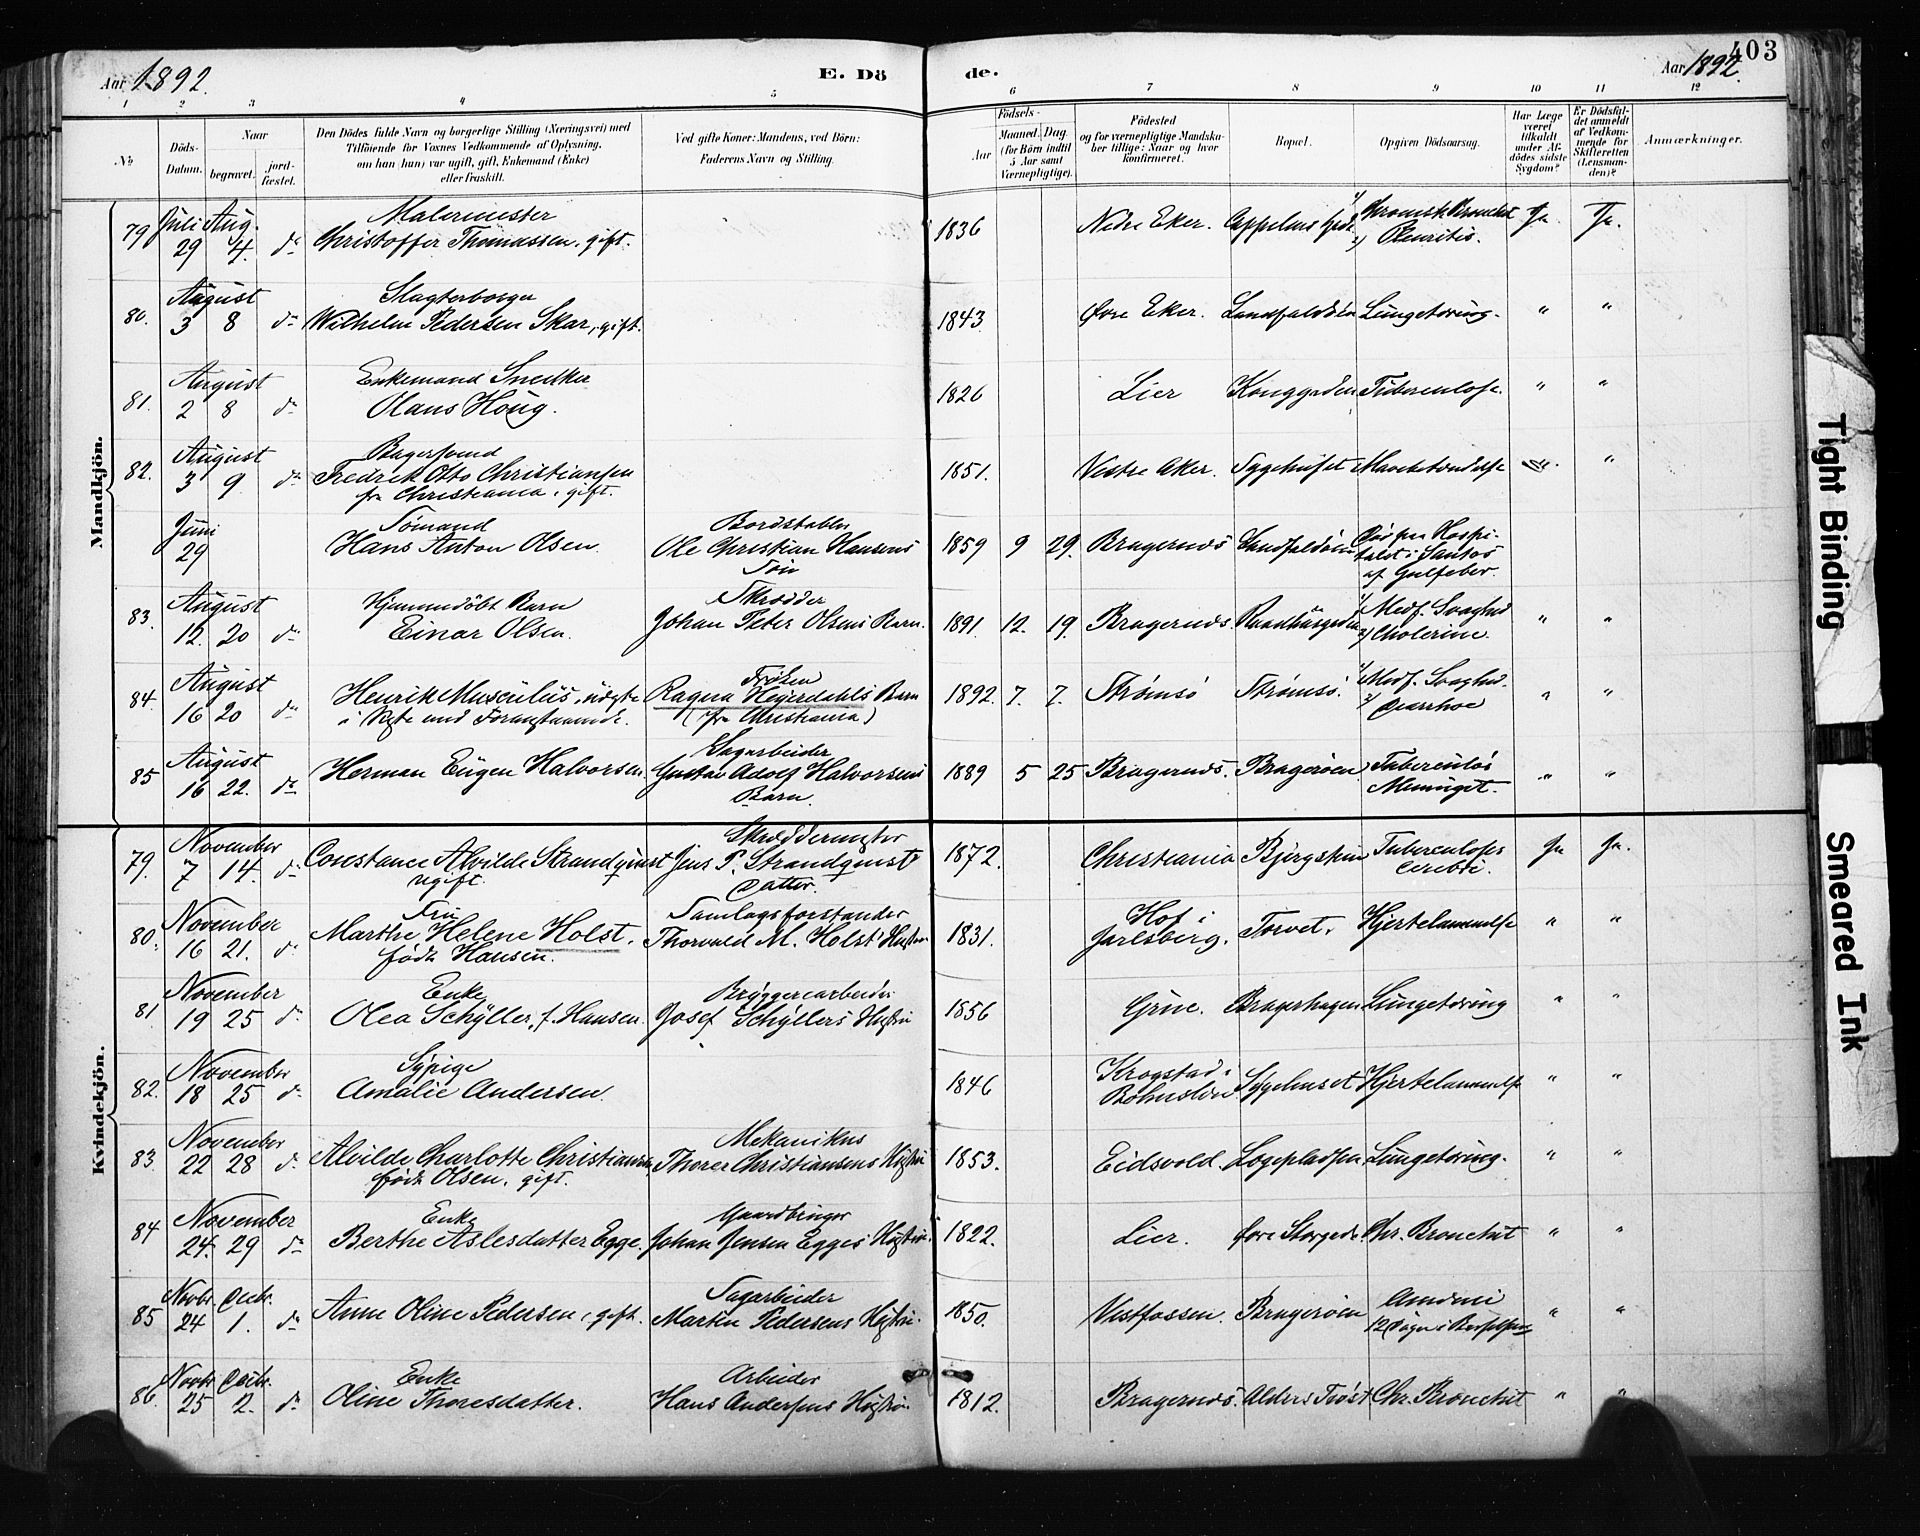 Aar 1892.
E. Dö
de.
Aar 1892.
403
1 2 3 4 5 6 7 8 9 10 11 12
No
Döds-Datum.
Naar
begravet.
jord-fæstet.
Den Dödes fulde Navn og borgerlige Stilling (Næringsvei) med
Tilföiende for Voxnes Vedkommende af Oplysning,
om han (hun) var ugift, gift, Enkemand (Enke)
eller fraskilt.
Ved gifte Koner: Mandens, ved Börn:
Faderens Navn og Stilling.
Födsels-
Aar
Maaned. Dag
(for Börn indtil
5 Aar samt
Værnepligtige).
Födested
og for værnepligtige Mandska-
ber tillige: Naar og hvor
konfirmeret.
Bopæl.
Opgiven Dödsaarsag.
Har Læge
været
tilkaldt
under Af-
dödes sidste
Sygdom?
Er Dödsfal-
det anmeldt
af Vedkom-
mende for
Skifteretten
(Lensman-
den)?
Anmærkninger.
Mandkjön.
79 Juli 29 Aug. 4. do Malermester Christoffer Thomassen, gift. 1836 Nedre Eker. 1) Chronisk Bronchit 2) Pleuritis. Ja Ja.
80. August 3 8 do Slagterborger Wilhelm Pedersen Skar, gift. 1843 Øvre Eker. Landfaldøen Lungetæring. " "
81. August 2 8 do Enkemand Snedker Olaus Houg. 1826 Lier Konggaden Tuberculose. " "
82. August 3 9 do Bagersvend Fredrik Otto Christiansen fra Christiania, gift. 1851. Vestre Aker. Sygehuset "
Juni 29 Sømand Hans Anton Olsen. Bordstabler Ole Christian Hansens Søn 1859 9 29. Bragernæs Landfaldøen Død paa Hospitalet i Santos af Gulfeber.
83. August 12. 20 do Hjemmedøbt Barn Einar Olsen. Skrædder Johan Peter Olsens Barn. 1891. 12. 19. Bragernæs. Raadhusgaden 1) Medf. Svaghed 2) Cholerine " "
84. August 16 20 do Henrik Musculus, udegte i Ægte med Foranstaaende. Frøken Ragna Heyerdahls Barn (fra Christiania) 1892 7. 7. Strømsø Strømsø. 1) Medf. Svaghed. 2) Diarrhoe " "
85 August 16 22. do Herman Eugen Halvorsen. Sagarbeider Gustav Adolf Halvorsens Barn. 1889 5 25 Bragernæs. Bragerøen Tuberculøs Meninget. " "
Kvindekjön.
79. November 7 14. do Constance Alvilde Strandquist ugift. Skræddermester Jens P. Strandquist Datter. 1872. Christiania Bjergstien Tuberculosis cerebri. Ja Ja.
80. November 16 21. do Fru Marthe Helene Holst. født Hansen. Samlagsforstander Thorvald M. Holst' Hustru 1831. Hof i Jarlsberg. Torvet. Hjertelammelse " "
81. November 19 25 do Enke Olea Schÿller, f. Hansen. Bryggerearbeider Josef Schÿllers Hustru 1856 Grue. Bragerhagen Lungetæring " "
82. November 18 25 do Sypige Amalie Andersen. 1846 Krogstad i Bohuslen Sygehuset Hjertelammelse " "
83. November 22 28 do Alvilde Charlotte Christiansen, født Olsen. gift. Mekanikus Thorer Christiansens Hustru 1853. Eidsvold. Logepladsen Lungetæring. " "
84 November 24. 29 do Enke Berthe Aslesdatter Egge. Gaardbruger Johan Jensen Egges Hustru. 1822. Lier. Øvre Storgade. Chr. Bronchit " "
85 Novbr. 24 Decbr. 1. do Anne Oline Pedersen, gift. Sagarbeider Martin Pedersens Hustru. 1850. Vestfossen. Bragerøen 12 Dage i Barselseng " "
86. Novbr 25 Decbr. 2. do Enke Oline Thoresdatter. Arbeider Hans Andersens Hustru. 1812. Bragernæs. Alders Trøst Chr. Bronchit " "
Tight Binding
Smeared Ink